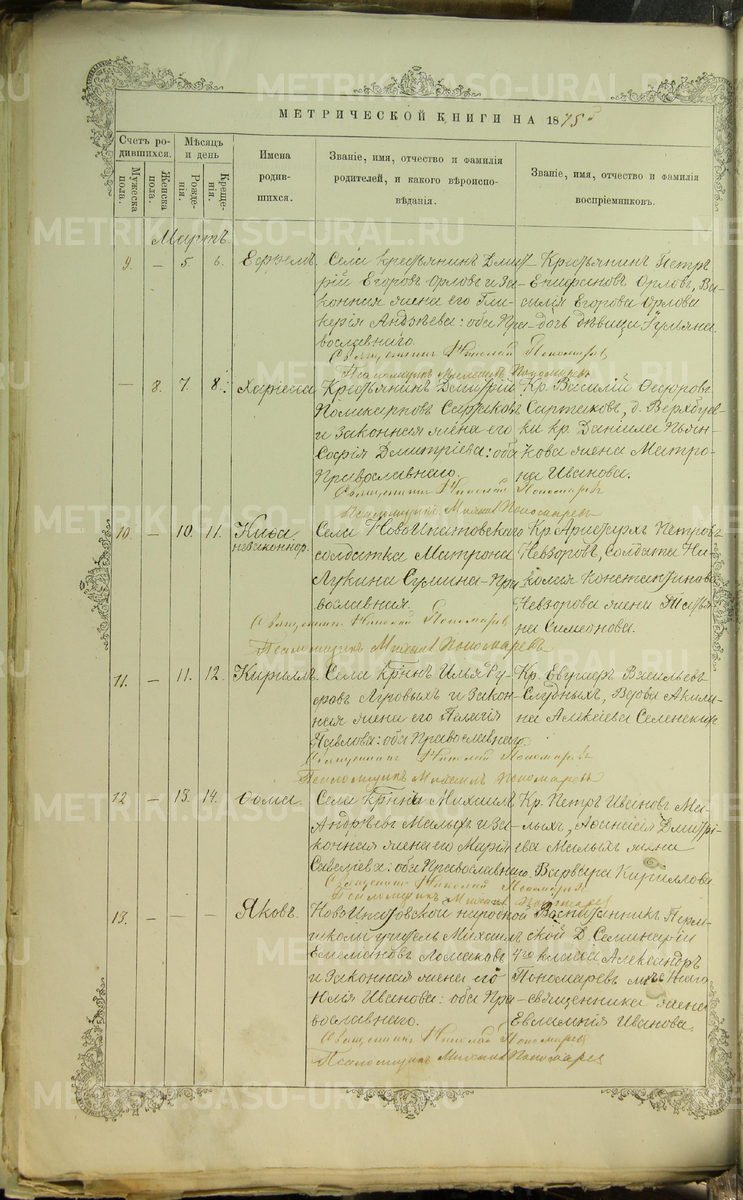 МЕТРИЧЕСКОЙ КНИГИ НА 1875 г
Счетъ родившихся.
Мужеска пола.
Женска пола.
Мѣсяцъ и день
Рожденія.
Крещенія.
Имена родившихся.
Званіе, имя, отчество и фамилія родителей, и какого вѣроисповѣданія.
Званіе, имя, отчество и фамилія воспріемниковъ.
Мартъ
9. — 5. 6. Ефремъ.
Села крестьянинъ Дмит-
рій Егоровъ Орловъ и за-
конная жена его Гли-
керія Андреева: оба Пра-
вославнаго.
Крестьянинъ Петръ
Орловъ, Ва-
силія Егорова Орлова
дочь дѣвица
Священникъ Николай Пономаревъ
Псаломщикъ Михаилъ Пономаревъ
— 8. 7. 8.
Крестьянинъ Димитрій
Поликарповъ Сартаковъ
и законная жена его
Софія Димитріева: оба
Православнаго.
Кр. Василій Ѳедоровъ
Сартаковъ, д.
ки кр. Даніила Пьян-
кова жена Матро-
на Иванова.
Священникъ Николай Пономаревъ
Псаломщикъ Михаилъ Пономаревъ
10. — 10. 11.
незаконнор.
Села НовоИпатовскаго
солдатка Матрона
Лукина Сулина - Пра-
вославная.
Кр. Аристархъ Петровъ
Невзоровъ, Солдата Ни-
колая Константинова
Невзорова жена Татья-
на Симеонова.
Священникъ Николай Пономаревъ
Псаломщикъ Михаилъ Пономаревъ
11. — 11. 12. Кириллъ.
Села Кр-нинъ
Луговыхъ и закон-
ная жена его Пелагія
Павлова: оба Православнаго
Кр. Васильевъ
вдова Акили-
на Алексѣева
Священникъ Николай Пономаревъ
Псаломщикъ Михаилъ Пономаревъ
12 — 13. 14. Ѳома.
Села Кр-нинъ Михаилъ
Андреевъ Малыхъ и за-
конная жена его Марія
Савельева: оба Православнаго.
Кр. Петръ Ивановъ Ма-
лыхъ, Аѳанасія Дмитрі-
ева Малыхъ жена
Варвара Кириллова
Священникъ Николай Пономаревъ
Псаломщикъ Михаилъ Пономаревъ
13. — — — Яковъ.
НовоИпатовской народной
школы учитель Михаилъ
Ломаковъ
и законная жена его
Юлія Иванова: оба Пра-
вославнаго.
Воспитанникъ Перм-
ской Д. Семинаріи
4го класса Александръ
Пономаревъ
священника жена
Евлампія Иванова
Священникъ Николай Пономаревъ
Псаломщикъ Михаилъ Пономаревъ
METRIKI.GASO-URAL.RU